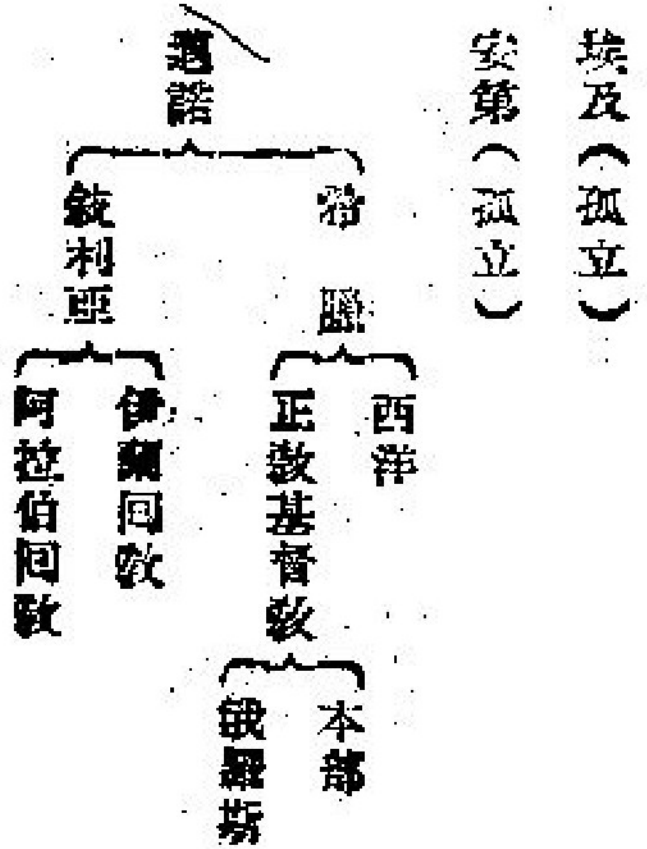 埃及（孤立）
安第（孤立）
邁諾
希臘
西洋
正敎基督敎
本部
俄羅斯
敍利亞
伊蘭回敎
阿拉伯回敎